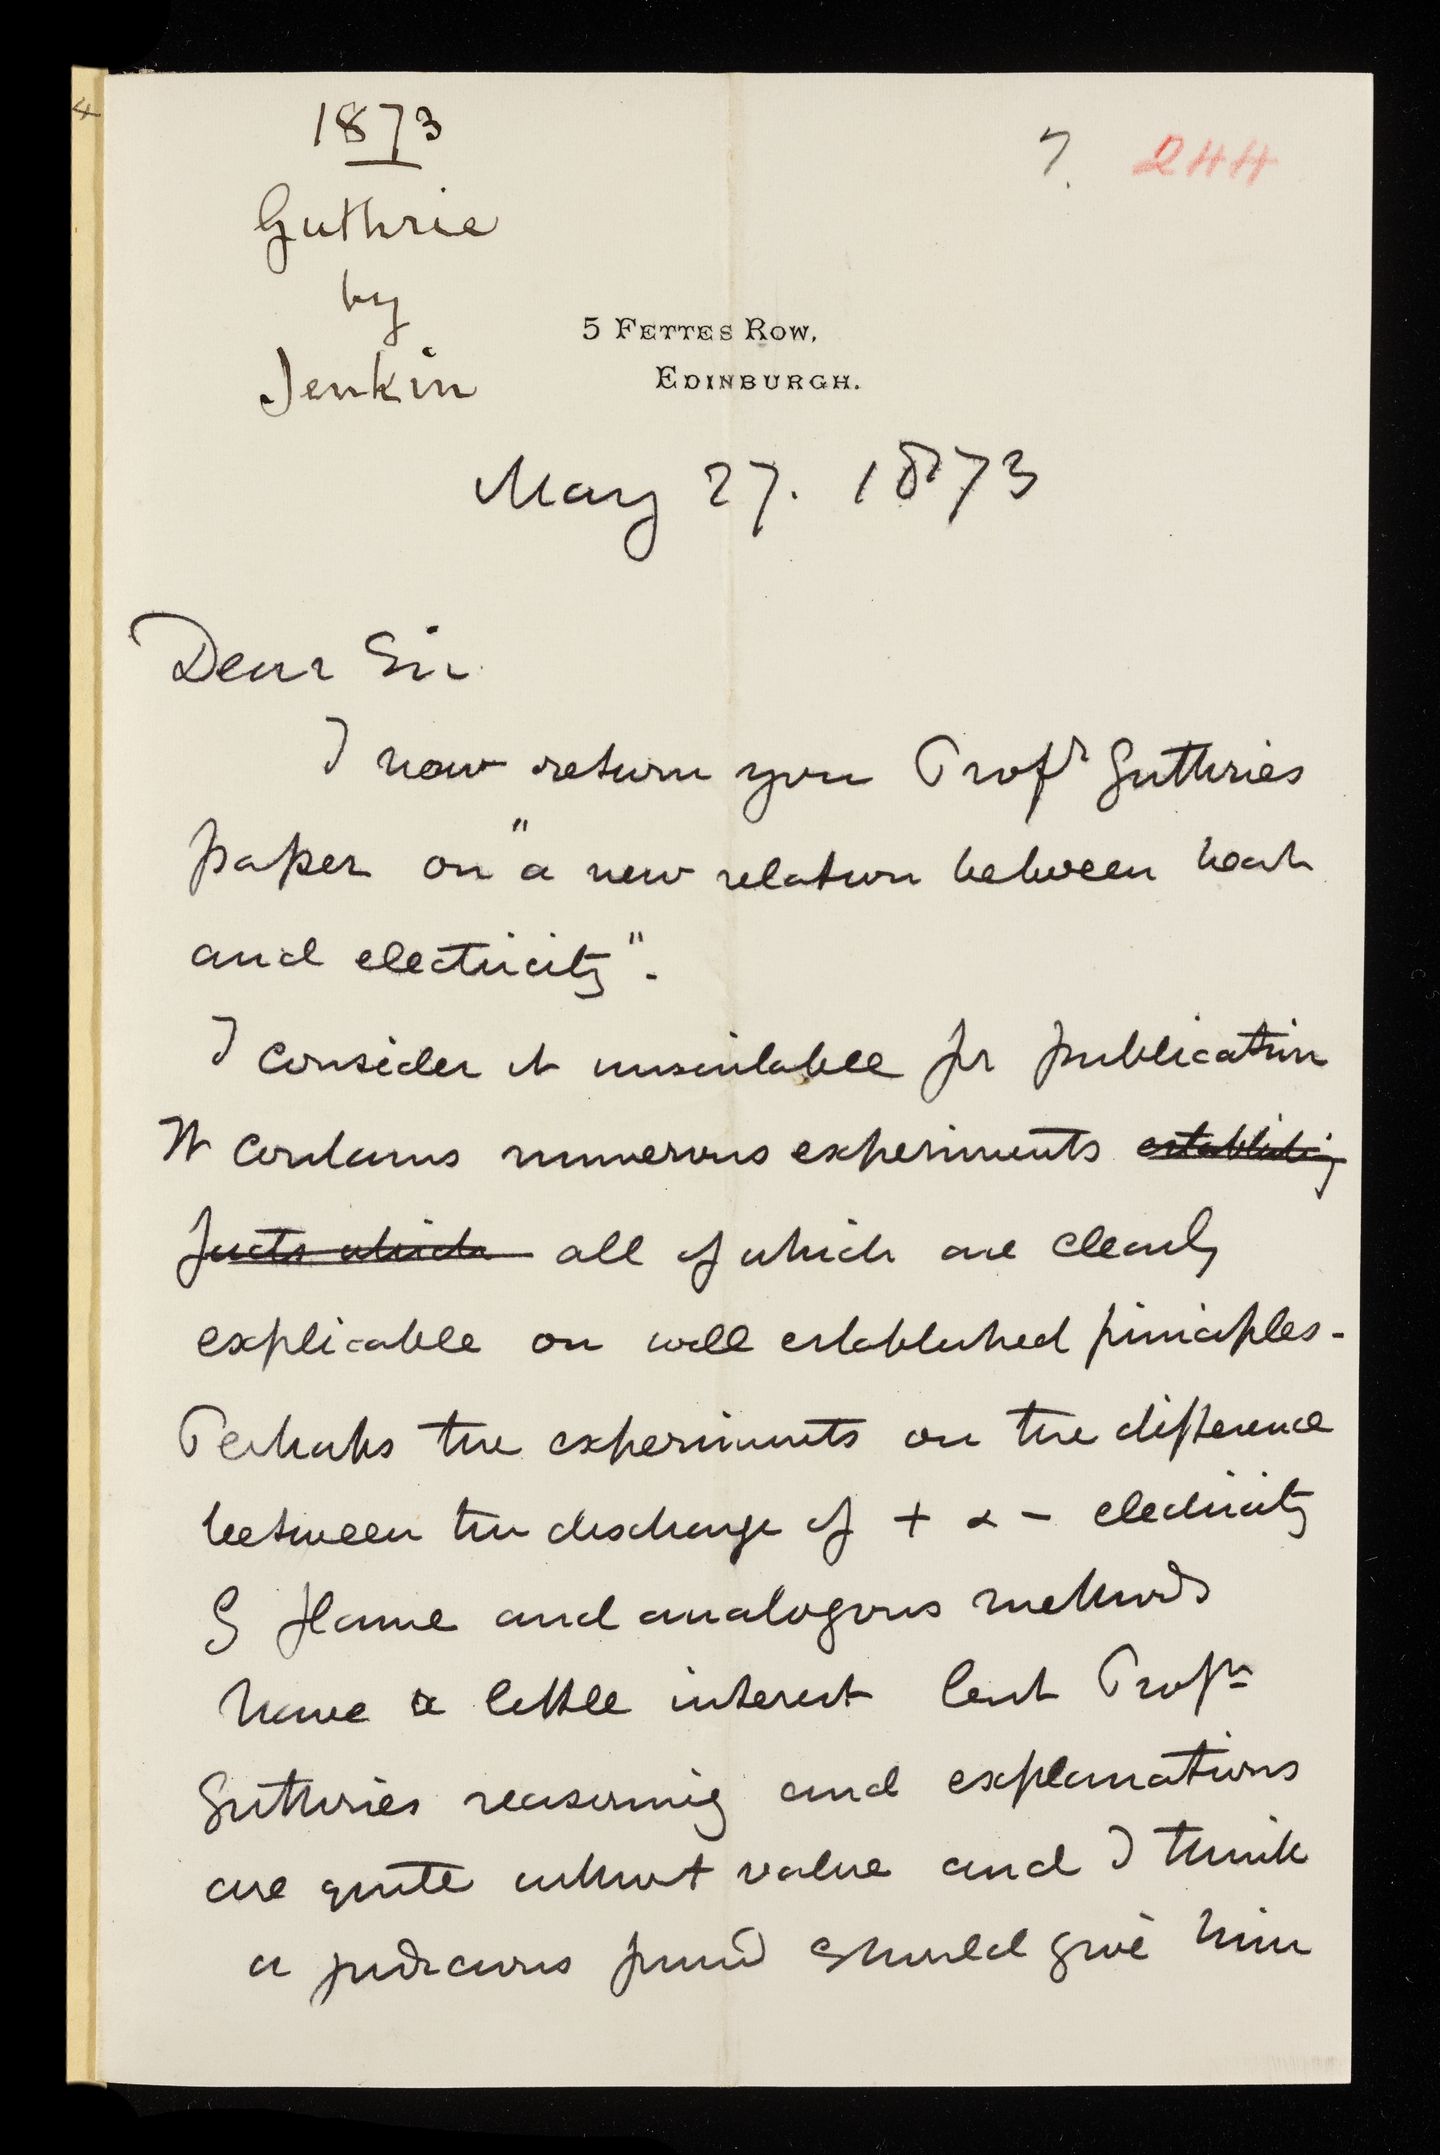 4
1873
7. 244
Guthrie
by
Jenkin
5 Fettes Row,
Edinburgh.
May 27. 1873
Dear Sir
I now return you Profr Guthries
paper on "a new relation between heat
and electricity".
I consider it unsuitable for publication
It contains numerous experiments establishing
facts which all of which are clearly
explicable on well established principles.
Perhaps the experiments on the difference
between the discharge of + & - electricity
by flame and analogous methods
have a little interest but Profr
Guthries reasoning and explanations
are quite without value and I think
a judicious friend should give him